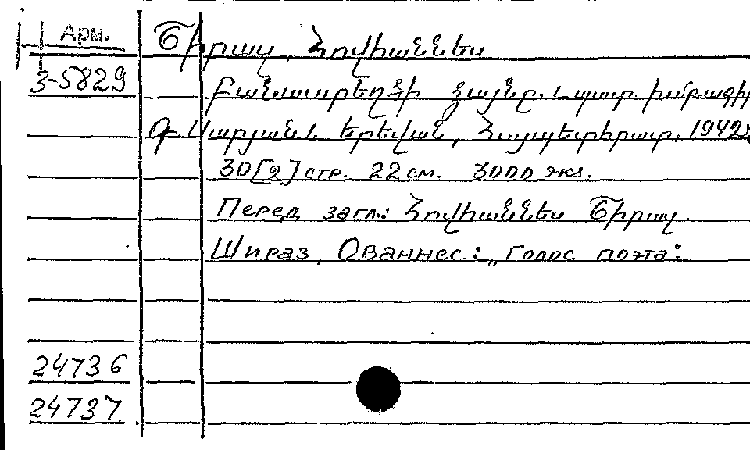 Арм. Շիրազ, Հովհաննես
3-5829 Բանաստեղծի ձայնը. պատ. խմբագիր
Գ. Սարյան: Երեվան, Հայպետհրատ, 1942:
30[2] стр. 22 см. 3000 экз.
Перед загл.: Հովհաննես Շիրազ
Шираз, Ованнес: „Голос поэта:
24736
24737